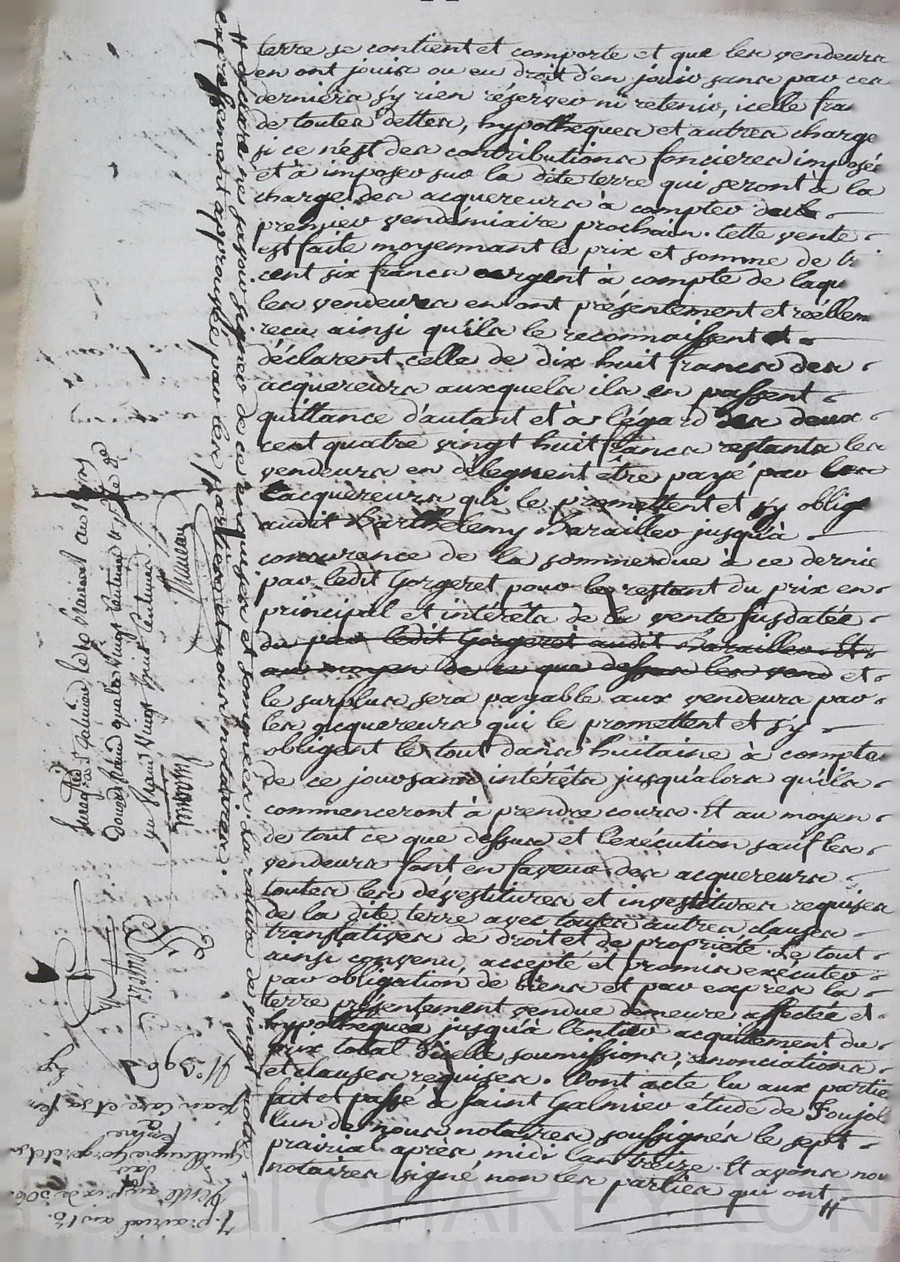 terre se contient et comporte et que les vendeurs
en ont jouis ou eu droit d'en jouir sans par ces
derniers s'y rien réserver ni retenir, icelle fran
de toutes dettes, hypothèques et autres charge
si ce n'est des contributions foncieres imposé
et à imposer sur la dite terre qui seront à la
charge des acquereurs à compter du
premier vendémiaire prochain. Cette vente
est faite moyennant le prix et somme de tr
cent six francs argent à compte de laqu
les vendeurs en ont présentement et réellem
reçu ainsi qu'ils le reconnaissent et
déclarent, celle de dix huit francs des
acquereurs auxquels ils en passent
quittance d'autant et à l'égard des deux
cent quatre vingt huit francs restants les
vendeurs en délèguent être payé par les
acquereurs qui le promettent et s'y oblig
audit Barthelemy Barailler jusqu'à
concurence de la somme due à ce dernie
par ledit Gorgeret pour le restant du prix en
principal et intérêts de la vente susdatée
du par ledit Gorgeret audit Barailler. Et
au moyen de ce que dessus les vend et
le surplus sera payable aux vendeurs par
les acquereurs qui le promettent et s'y
obligent le tout dans huitaine à compter
de ce jour sans intérêts jusqu'alors qu'ils
commenceront à prendre cours. Et au moyen
de tout ce que dessus et l'exécution sauf les
vendeurs font en faveur des acquereurs
toutes les dévestitures et investitures requises
de la dite terre avec toutes autres clauses
translatives de droit et de propriété. Le tout
ainsi convenu, accepté et promis exécuter
par obligation de biens et par exprès la
terre présentement vendue demeure affectée et
hypothéquée jusqu'à l'entier acquittement du
prix total d'icelle soumissions, renonciations
et clauses requises. Dont acte lu aux partie
fait et passé à Saint Galmier étude de Poujol
l'un de nous notaires soussignés le sept
prairial après midi l'an treize. Et avons nou
notaires signé non les parties qui ont #
# déclaré ne savoir signer de ce requises et sommées. la rature de vingt mots
expressément approuvée par les parties et nous notaires.
N° 390
jean
femme
Vente au prix de 306
7. prairial an 13.
Pascal CHAREYRON